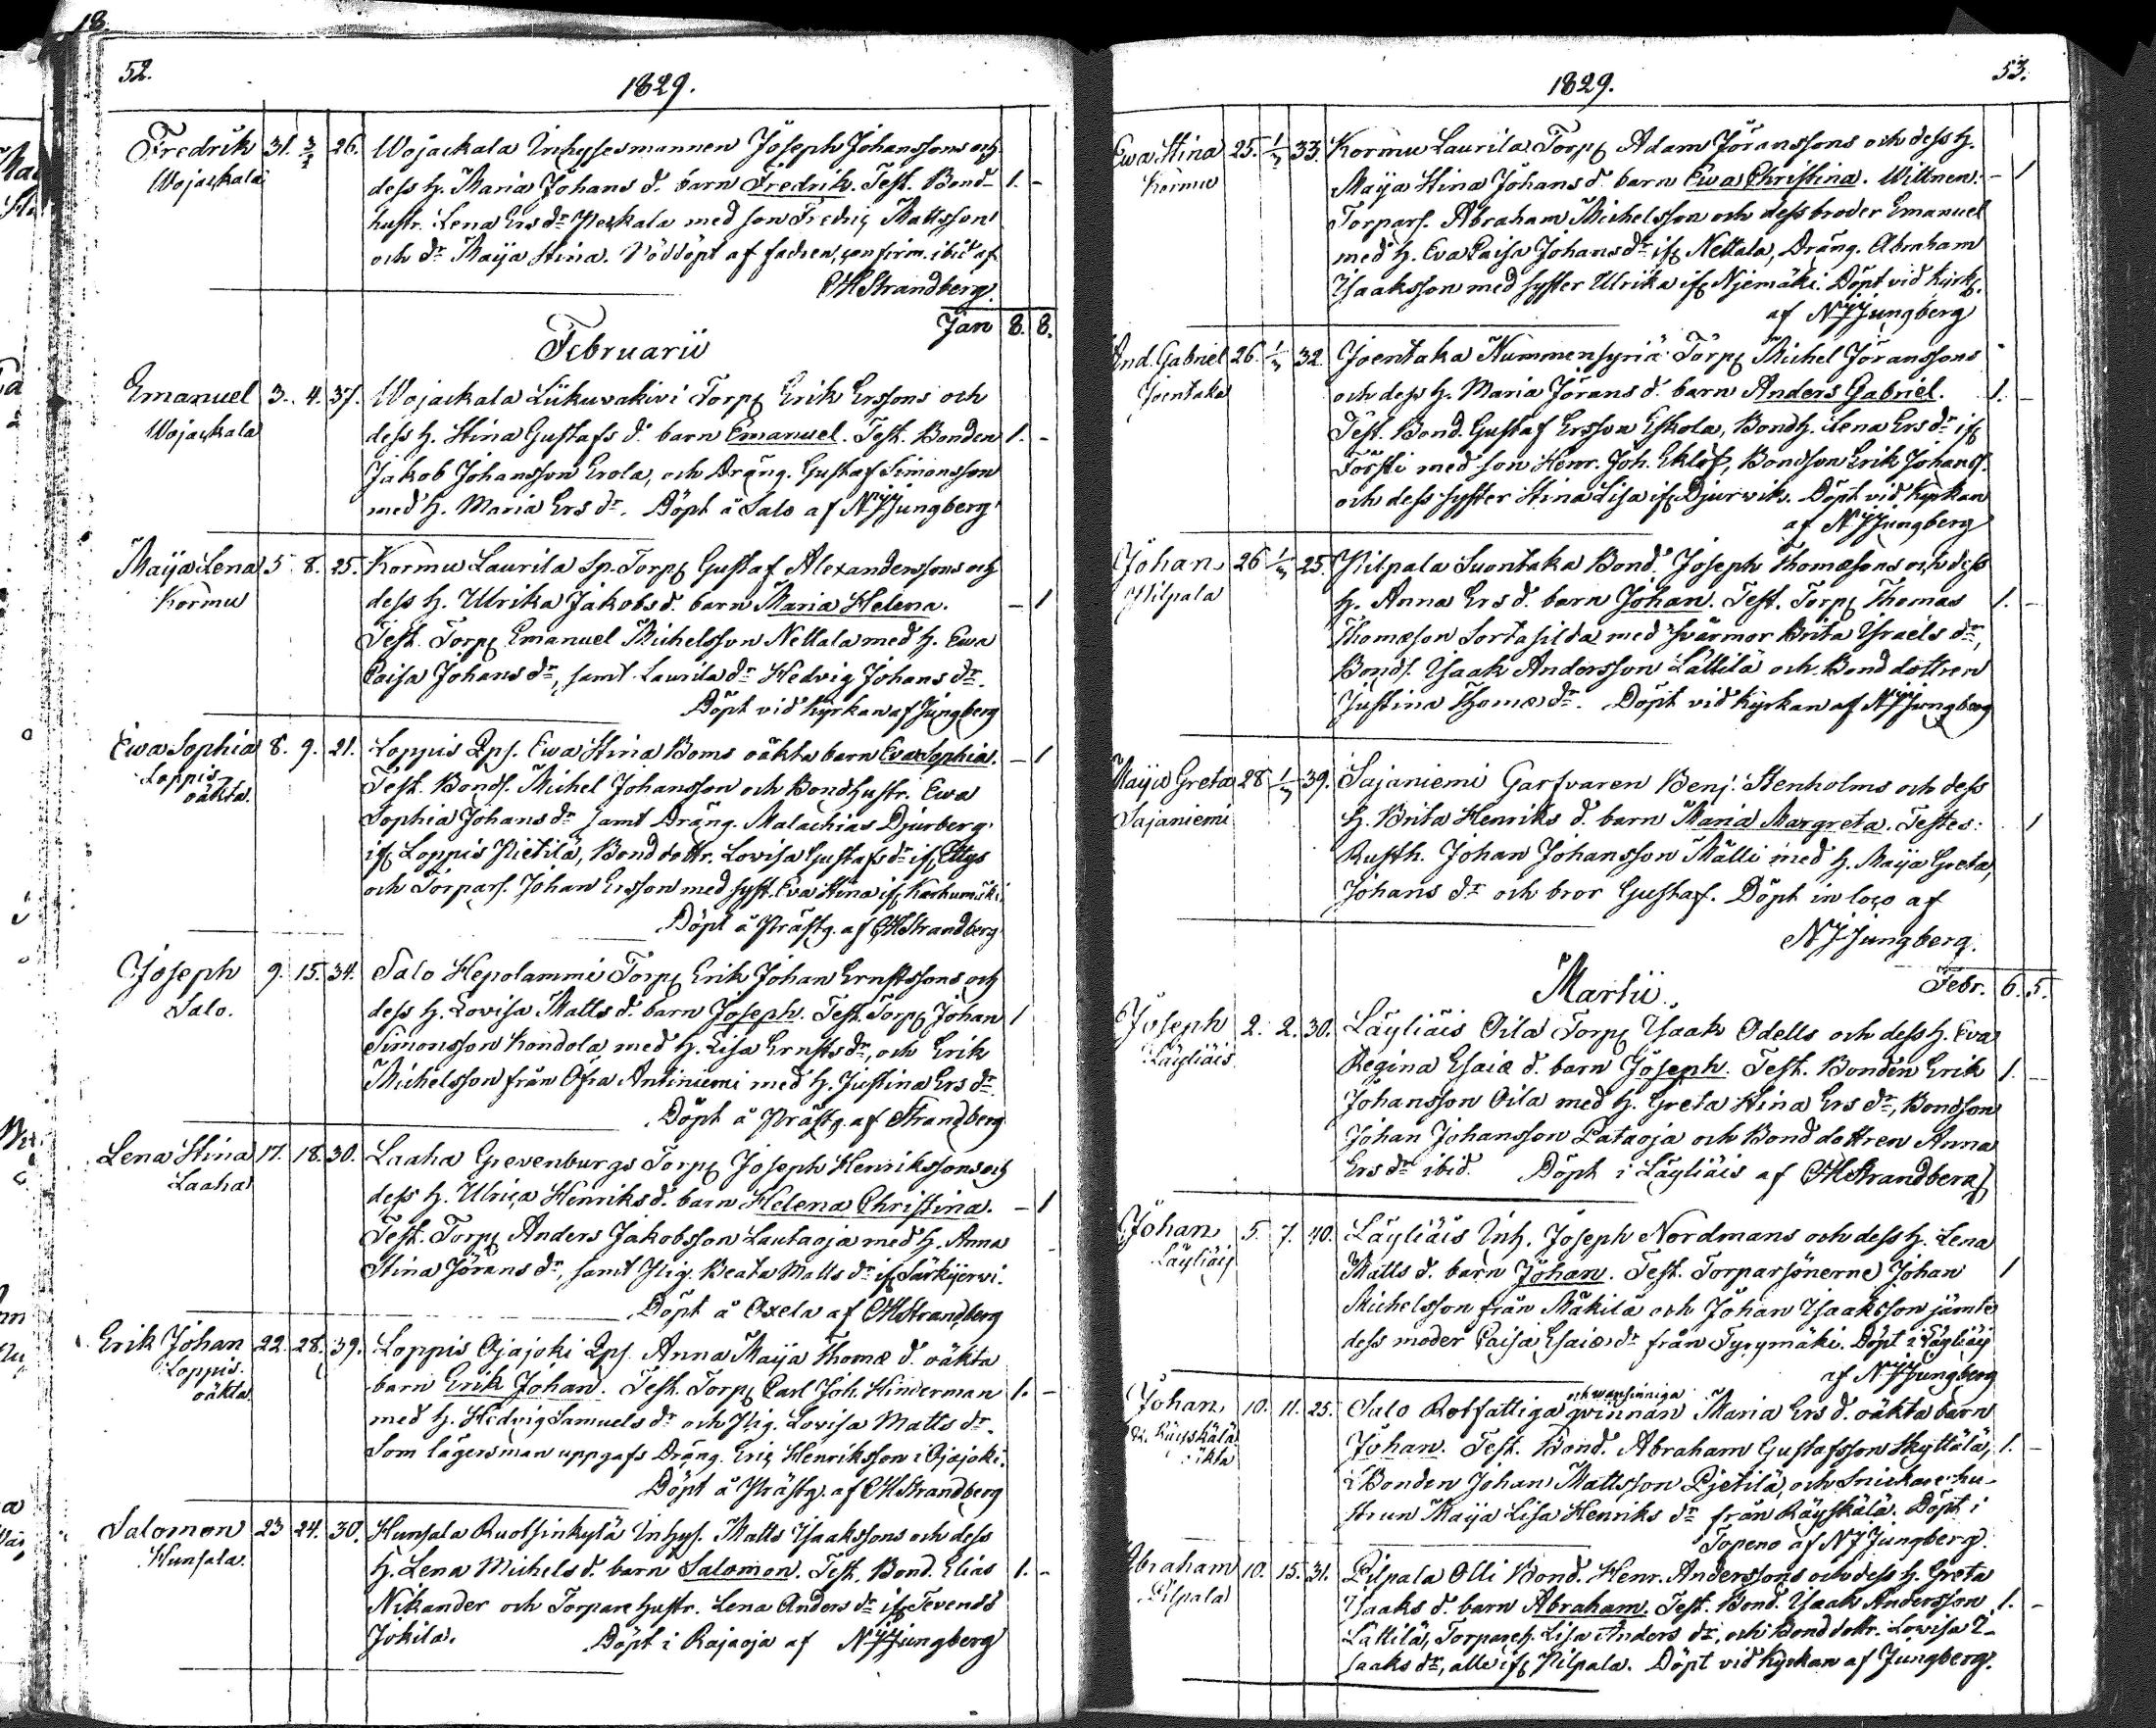 18.
52.
1829.
Fredrik 31. 3/2 26. Wojackala Inhysesmannen Joseph Johanssons och
Wojackala dess h. Maria Johans d. barn Fredrik. Test. Bond- 1. -
hustr. Lena Ers dr Peckala med son Fredric Mattsson
och dr Maija Stina. Nöddöpt af fadren, confirm. ibid af
CHStrandberg.
Jan 8. 8.
Februarii
Emanuel 3. 4. 37. Wojackala Liikuvakivi Torp. Erik Erssons och
Wojackala dess h. Stina Gustafs d. barn Emanuel. Test. Bonden 1. -
Jakob Johansson Erola, och Dräng. Gustaf Simonsson
med h. Maria Ers dr. Döpt å Salo af NJjungberg
Maija Lena 5. 8. 25. Kormu Laurila Sp. Torp. Gustaf Alexanderssons och
Kormu dess h. Ulrika Jakobs d. barn Maria Helena. - 1
Test. Torp. Emanuel Michelsson Nettala med h. Ewa
Caisa Johans dr, samt Laurila dr Hedvig Johans dr.
Döpt vid Kyrkan af Jungberg
Ewa Sophia 8. 9. 21. Loppis Qps. Ewa Stina Boms oäkta barn Eva Sophia. - 1
Loppis Test. Bonds. Michel Johansson och Bondhustr. Ewa
oäkta. Sophia Johans dr samt Dräng. Malachias Djurberg
if. Loppis Pietilä, Bonddottr. Lovisa Gustafs dr if. Ettys
och Torpars. Johan Ersson med syst. Eva Stina if. Karhumäki.
Döpt å Prästg. af CHStrandberg
Joseph 9. 15. 34. Salo Hepolammi Torp. Erik Johan Ernstssons och
Salo. dess h. Lovisa Matts d. barn Joseph. Test. Torp. Johan 1
Simonsson Kondola, med h. Lisa Ernsts dr, och Erik
Michelsson från Ofra Antiniemi med h. Justina Ers dr.
Döpt å Prästg. af Strandberg
Lena Stina 17. 18. 30. Laaha Grevenburgs Torp. Joseph Henrikssons och
Laaha dess h. Ulrica Henriks d. barn Helena Christina. - 1
Test. Torp. Anders Jakobsson Lautaoja med h. Anna
Stina Jörans dr, samt Pig. Beata Matts dr if. Särkijerwi.
Döpt å Oxela af CHStrandberg
Erik Johan 22. 28. 39. Loppis Ojajoki Qps. Anna Maija Thomæ d. oäkta
Loppis. barn Erik Johan. Test. Torp. Carl Joh. Hinderman 1. -
oäkta med h. Hedvig Samuels dr och Pig. Lovisa Matts dr.
Som lägersman uppgafs Dräng. Eric Henriksson i Ojajoki.
Döpt å Prästg. af CHStrandberg
Salomon 23 24. 30. Hunsala Ruotsinkylä Inhys. Matts Isaakssons och dess
Hunsala. h. Lena Michels d. barn Salomon. Test. Bond. Elias 1. -
Nikander och Torpare hustr. Lena Anders dr if. Tevends
Jokila. Döpt i Rajaoja af NJjungberg
53.
1829.
Ewa Stina 25. 1/3 33. Kormu Laurila Torp. Adam Jöranssons och dess h.
Kormu Maija Stina Johans d. barn Ewa Christina. Wittnen: - 1
Torpars. Abraham Michelsson och dess broder Emanuel
med h. Eva Caisa Johans dr if. Nettala, Dräng. Abraham
Isaaksson med syster Ulrika if. Njemäki. Döpt vid Kyrk.
af NJjungberg
And. Gabriel 26. 1/3 32. Joentaka Nummensyriä Torp. Michel Jöranssons
Joentaka och dess h. Maria Jörans d. barn Anders Gabriel. 1.
Test. Bond. Gustaf Ersson Eskola, Bondh. Lena Ers dr if.
Törsti med son Henr. Joh. Eklöf, Bondson Erik Johanss.
och dess syster Stina Lisa if. Djurwik. Döpt vid Kyrkan
af NJjungberg
Johan 26 1/3 25. Pilpala Suontaka Bond. Joseph Thomæsons och dess
Pilpala h. Anna Ers d. barn Johan. Test. Torp. Thomas 1. -
Thomæson Sortasilda med Svärmor Brita Israels dr,
Bonds. Isaak Andersson Lättilä och Bonddottren
Justina Thomæ dr. Döpt vid Kyrkan af NJjungberg
Maija Greta 28 1/3 39. Sajaniemi Garfvaren Benj. Stenholms och dess
Sajaniemi h. Brita Henriks d. barn Maria Margreta. Testes: 1
Rusth. Johan Johansson Mälli med h. Maija Greta
Johans dr och bror Gustaf. Döpt in loco af
NJjungberg.
Febr. 6. 5.
Martii.
Joseph 2. 2. 30. Läyliäis Oila Torp. Isaak Odells och dess h. Eva
Läyliäis Regina Esaiæ d. barn Joseph. Test. Bonden Erik 1. -
Johansson Oila med h. Greta Stina Ers dr, Bondson
Johan Johansson Pataoja och Bonddottren Anna
Ers dr ibid. Döpt i Läyliäis af CHStrandberg
Johan 5. 7. 40. Läyliäis Inh. Joseph Nordmans och dess h. Lena
Läyliäis Matts d. barn Johan. Test. Torparsönerne Johan 1
Michelsson från Mäkilä och Johan Isaaksson jämte
dess moder Caisa Esaiæ dr från Tyrymäki. Döpt i Läyliäis
af NJjungberg
Johan 10. 11. 25. Salo Rotfattiga och wansinniga qvinnan Maria Ers d. oäkta barn
Räyskälä Johan. Test. Bond. Abraham Gustafsson Skyttälä, 1. -
oäkta Bonden Johan Mattsson Pjetilä, och Snickare hu-
strun Maija Lisa Henriks dr från Räyskälä. Döpt i
Topeno af NJJungberg.
Abraham 10. 15. 31. Pilpala Olli Bond. Henr. Anderssons och dess h. Greta
Pilpala Isaaks d. barn Abraham. Test. Bond. Isaak Andersson 1. -
Lättilä, Torpareh. Lisa Anders dr, och Bonddottr. Lowisa I-
saaks dr, alle if. Pilpala. Döpt vid Kyrkan af Jungberg.